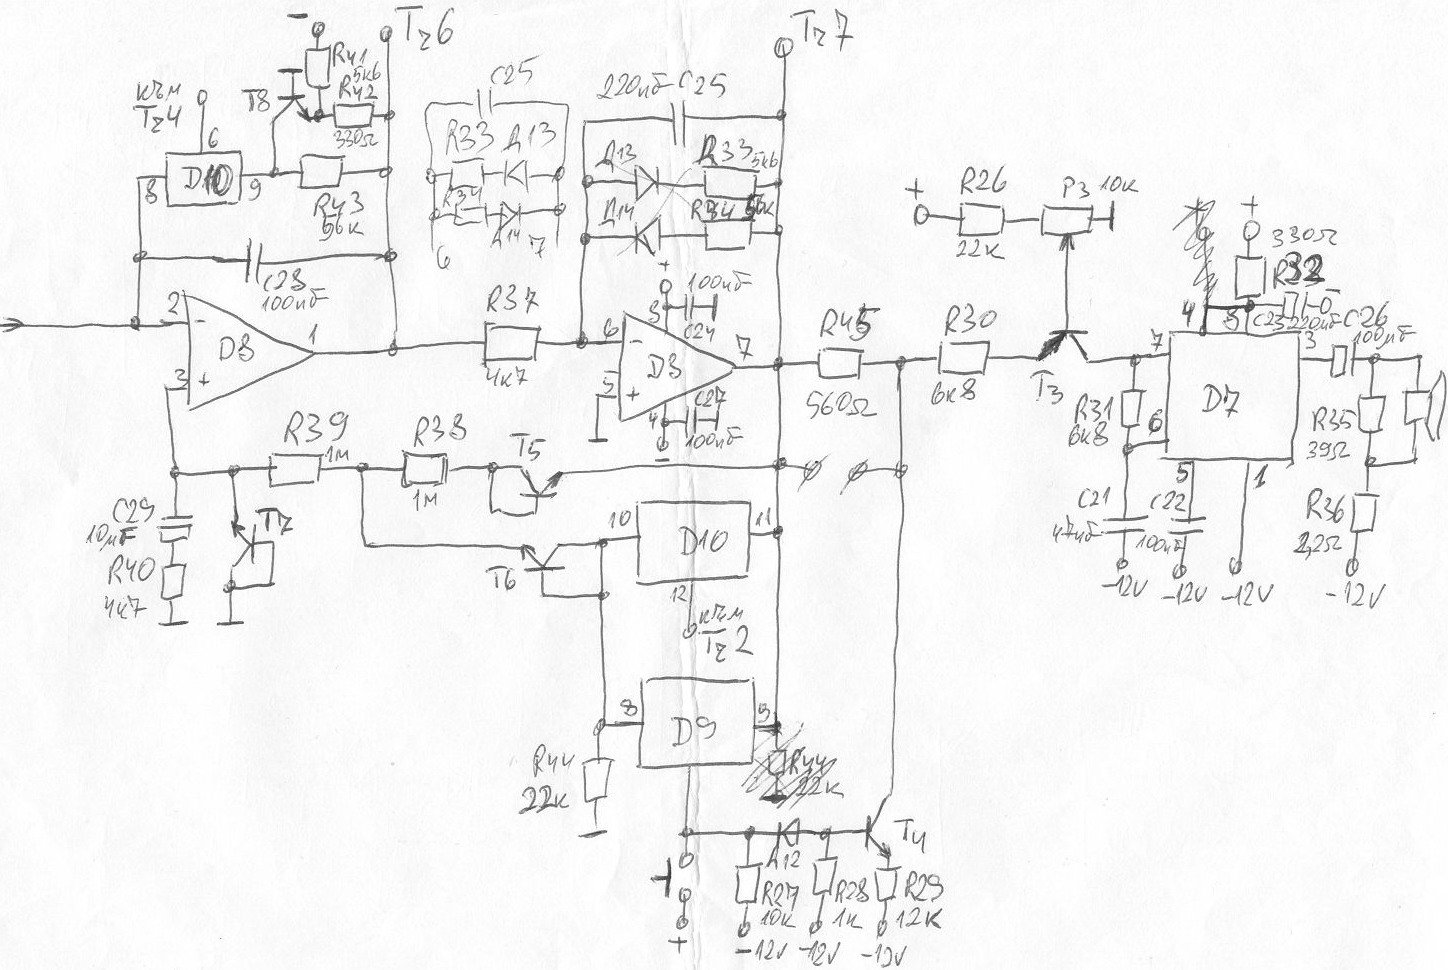 −
Tч6
Tч7
R41
5к6
R42
330Ω
T8
към
Tч4
6
D10
8
9
R43
56к
C23
100нФ
2
−
D8
1
3
+
C25
R33
Д13
R34
Д14
6
7
220пФ
C25
Д13
R33
5к6
Д14
R34
56к
+
8
100нФ
C24
R37
4к7
6
−
D8
7
5
+
4
C27
100нФ
−
R45
560Ω
R30
6к8
+
R26
22к
P3
10к
T3
+
330Ω
R32
4
8
C23
220мФ
−
C26
100мФ
7
3
D7
R31
6к8
6
5
1
R35
39Ω
R36
2,2Ω
C21
47нФ
C22
100нФ
−12V
−12V
−12V
−12V
R39
1м
R38
1м
T5
C29
10мФ
T7
R40
4к7
T6
10
D10
11
12
към
Tч2
8
D9
9
R44
22к
R44
22к
T4
Д12
R27
10к
R28
1к
R29
12к
+
−12V
−12V
−12V